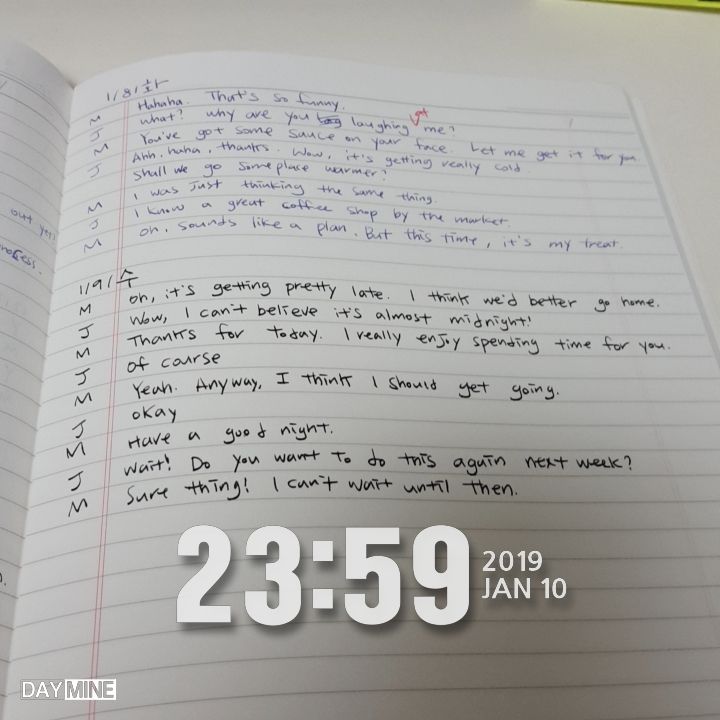 1/8/화
M Hahaha. That's so funny.
J What? Why are you laughing at me?
M You've got some sauce on your face. Let me get it for you.
J Ahh, haha, thanks. Wow, it's getting really cold.
Shall we go someplace warmer?
M I was just thinking the same thing.
J I know a great coffee shop by the market.
M Oh, sounds like a plan. But this time, it's my treat.
out yet
process.
1/9/수
M Oh, it's getting pretty late. I think we'd better go home.
J Wow, I can't believe it's almost midnight!
M Thanks for today. I really enjoy spending time for you.
J Of course
M Yeah. Anyway, I think I should get going.
J Okay
M Have a good night.
J Wait! Do you want to do this again next week?
M Sure thing! I can't wait until then.
23:59
2019
JAN 10
DAY MINE